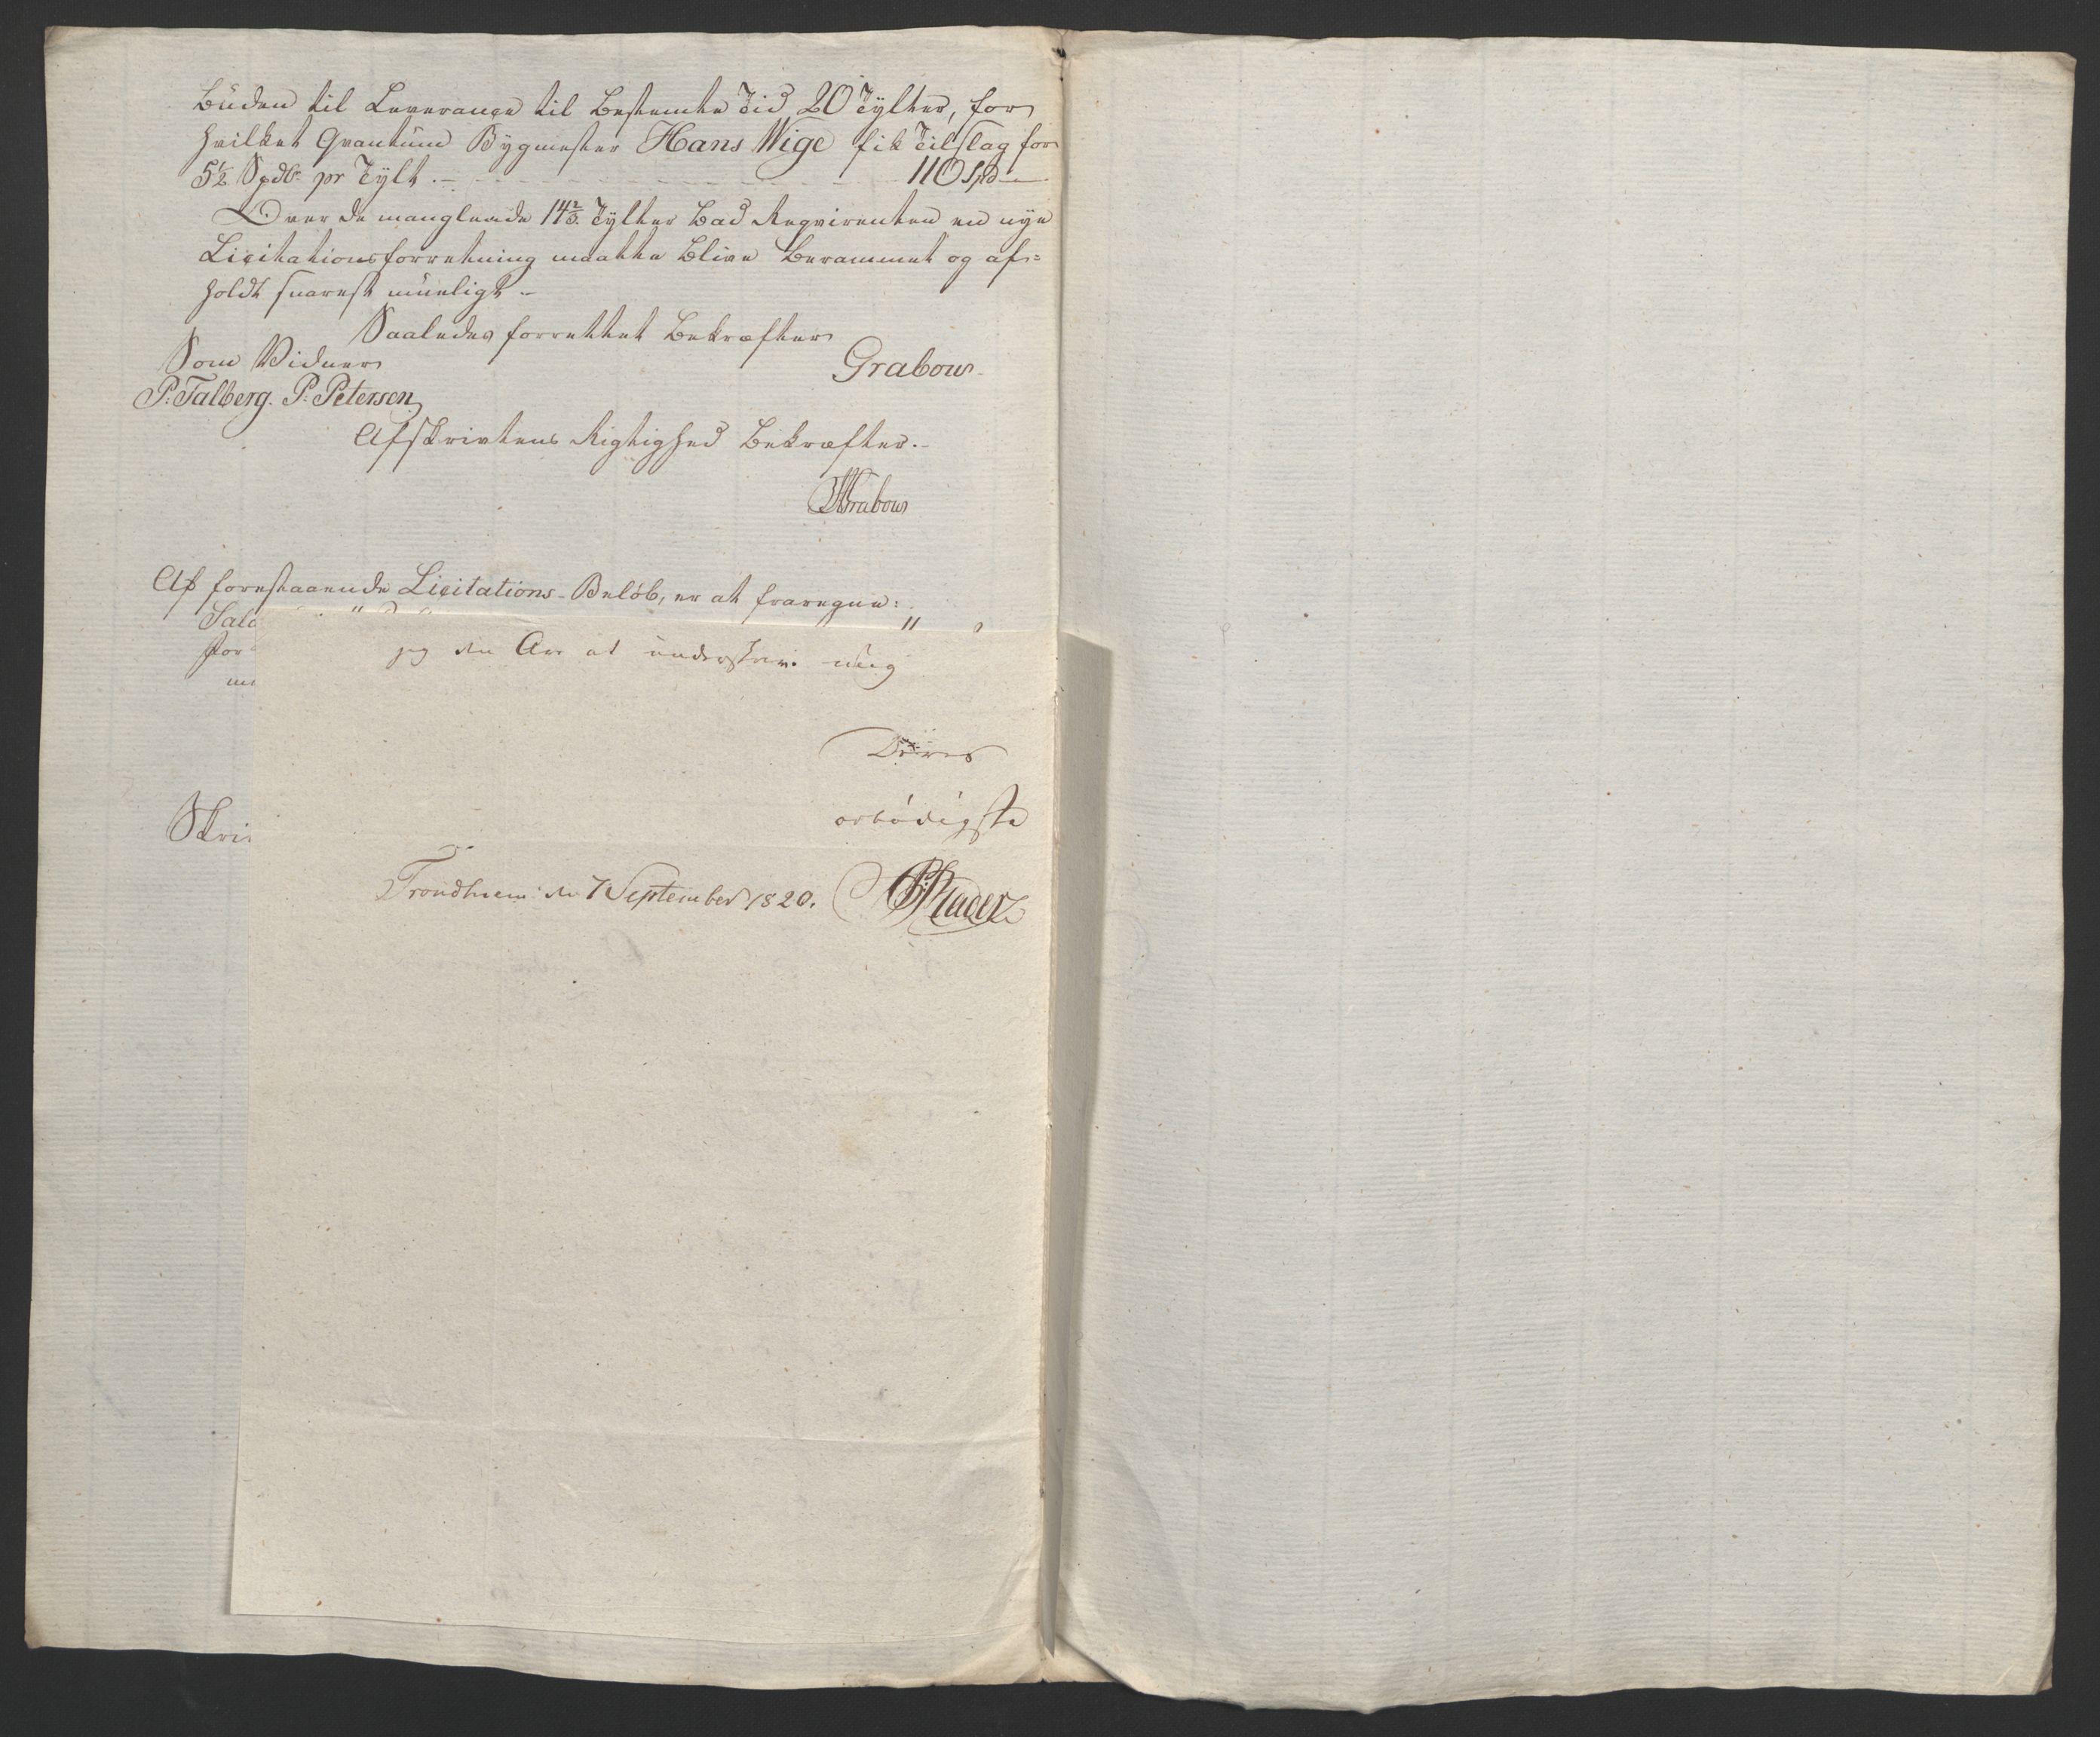 buden til Leverange til bestemte Tid 20 Tylter, for
hvilket Qvantum Bygmester Hans Wige fik Tilslag for
5½ Spdlr pr Tylt. - 110 Spd -
Over de manglende 14⅔ Tylter bad Reqvirenten en nye
Licitationsforretning maatte blive berammet og af=
holdt snarest mueligt -
Saaledes forrettet bekræfter
Som Vidner
Grabow
P: Talberg. P: Petersen
Afskrivtens Rigtighed bekræfter. -
Grabow
Af forestaaende Licitations-Beløb, er at fraregne:
Sal
For
Skri
jeg den Ære at underskrive mig
Deres
ærbødigste
Trondhiem den 7 September 1820.